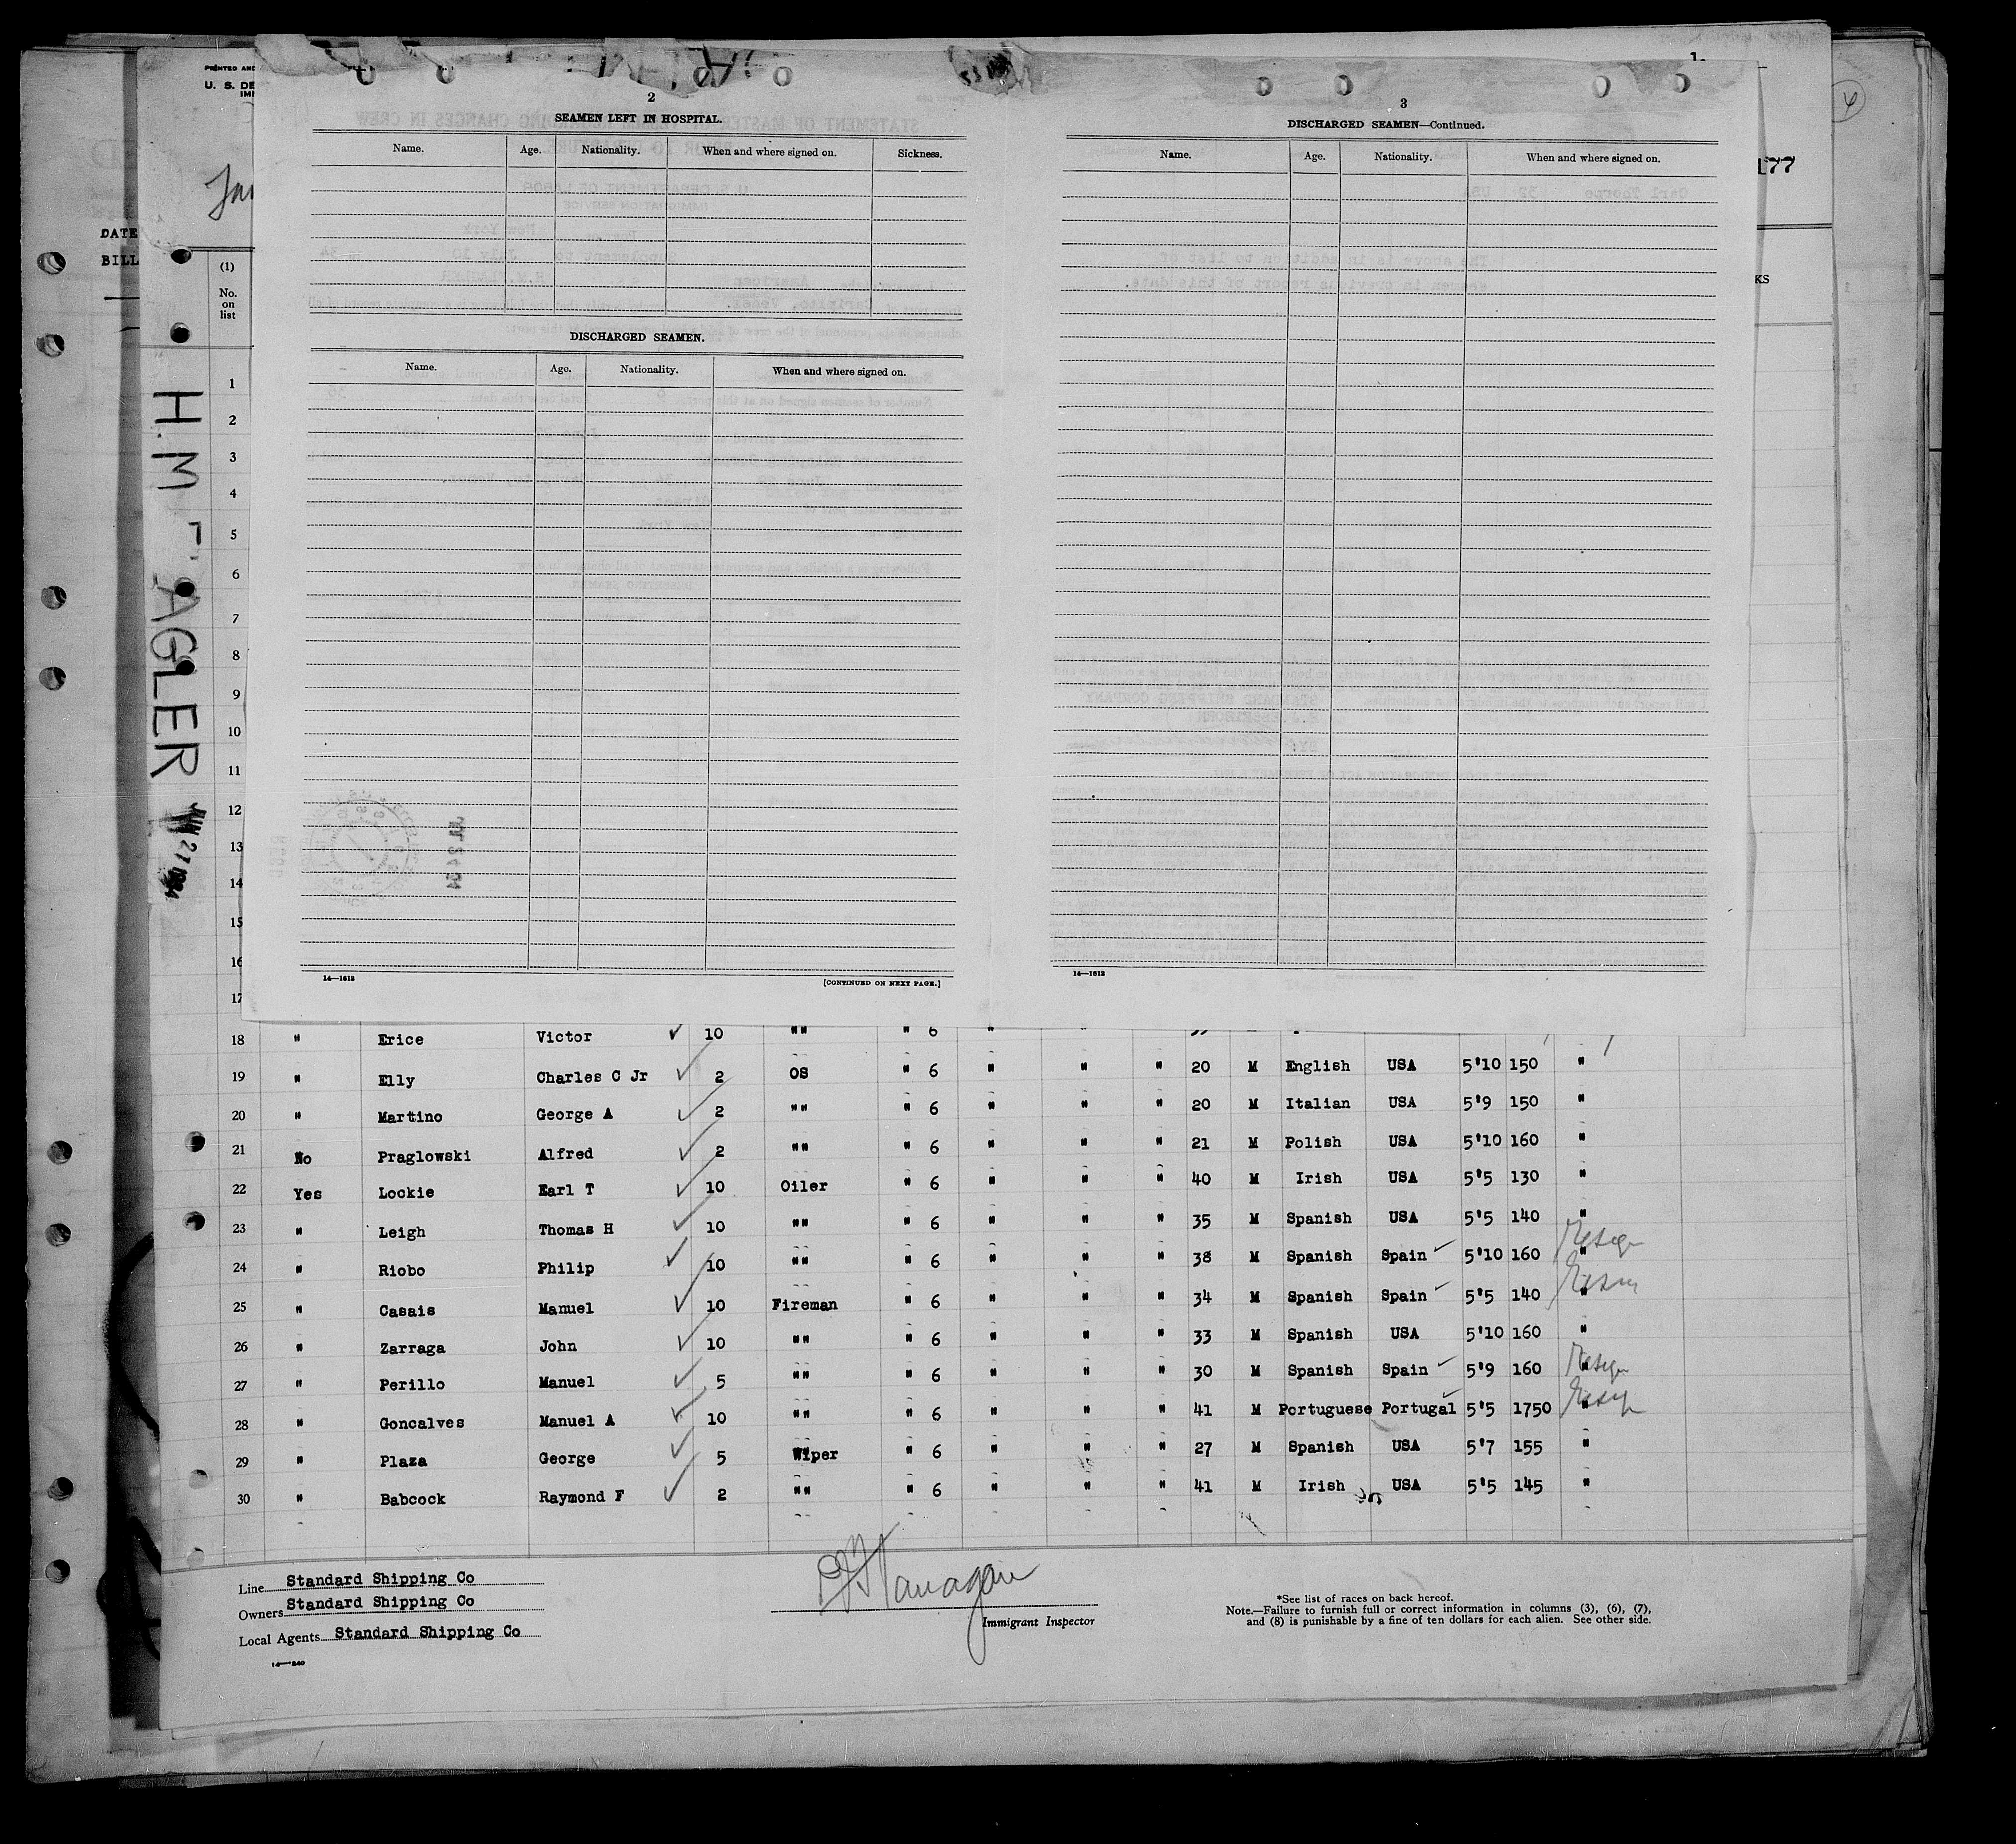 PRINTED AND
U. S. DE
IMM
DATE
BILL
(1)
No.
on
list
177
KS
H.M FLAGLER
JUN 21 1934
2
SEAMEN LEFT IN HOSPITAL.
Name. Age. Nationality. When and where signed on. Sickness.
DISCHARGED SEAMEN.
Name. Age. Nationality. When and where signed on.
14—1613
[CONTINUED ON NEXT PAGE.]
3
DISCHARGED SEAMEN—Continued.
Name. Age. Nationality. When and where signed on.
14—1613
1
2
3
4
5
6
7
8
9
10
11
12
13
14
15
16
17
18 " Erice Victor ✓ 10 "" " 6 " "
19 " Elly Charles C Jr ✓ 2 OS " 6 " " " 20 M English USA 5'10 150 "
20 " Martino George A ✓ 2 "" " 6 " " " 20 M Italian USA 5'9 150 "
21 No Praglowski Alfred ✓ 2 "" " 6 " " " 21 M Polish USA 5'10 160 "
22 Yes Lockie Earl T ✓ 10 Oiler " 6 " " " 40 M Irish USA 5'5 130 "
23 " Leigh Thomas H ✓ 10 "" " 6 " " " 35 M Spanish USA 5'5 140 "
24 " Riobo Philip ✓ 10 "" " 6 " " " 38 M Spanish Spain ✓ 5'10 160 "
25 " Casais Manuel ✓ 10 Fireman " 6 " " " 34 M Spanish Spain ✓ 5'5 140 "
26 " Zarraga John ✓ 10 "" " 6 " " " 33 M Spanish USA 5'10 160 "
27 " Perillo Manuel ✓ 5 "" " 6 " " " 30 M Spanish Spain ✓ 5'9 160 "
28 " Goncalves Manuel A ✓ 10 "" " 6 " " " 41 M Portuguese Portugal ✓ 5'5 1750 "
29 " Plaza George ✓ 5 Wiper " 6 " " " 27 M Spanish USA 5'7 155 "
30 " Babcock Raymond F ✓ 2 "" " 6 " " " 41 M Irish USA 5'5 145 "
Line Standard Shipping Co
Owners Standard Shipping Co
Local Agents Standard Shipping Co
14—1240
Immigrant Inspector
*See list of races on back hereof.
Note.—Failure to furnish full or correct information in columns (3), (6), (7),
and (8) is punishable by a fine of ten dollars for each alien. See other side.